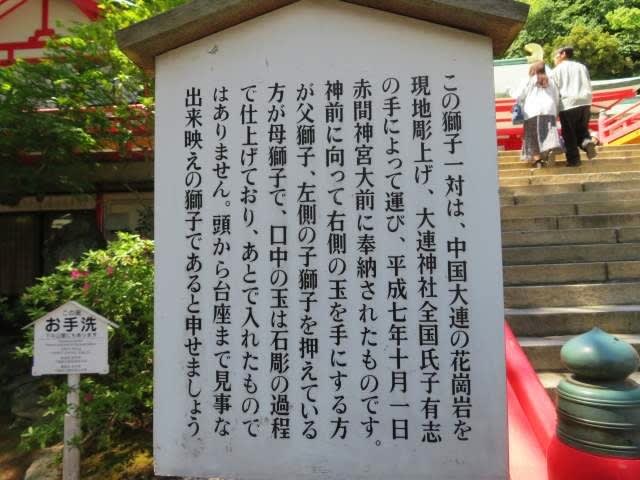 この獅子一対は、中国大連の花崗岩を
現地彫上げ、大連神社全国氏子有志
の手によって運び、平成七年十月一日
赤間神宮大前に奉納されたものです。
神前に向って右側の玉を手にする方
が父獅子、左側の子獅子を押えている
方が母獅子で、口中の玉は石彫の過程
で仕上げており、あとで入れたもので
はありません。頭から台座まで見事な
出来映えの獅子であると申せましょう
この奥
お手洗